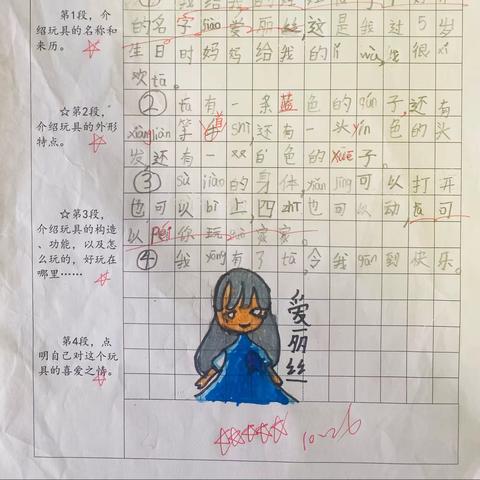 第1段，介
绍玩具的名称和
来历。
的名字jiào爱丽丝，这是我过5岁
生日时妈妈给我的lǐ wù，我很xǐ
欢tā。
☆第2段，
介绍玩具的外形
特点。
② tā有一条蓝色的qún子，还有
xiàng liàn等 shì，还有一头yín色的头
发，还有一双白色的xuē子。
☆第3段，
介绍玩具的构造
、功能，以及怎
么玩的，好玩在
哪里……
③ sù jiāo的身体，yǎn jīng可以打开
也可以bì上，四zhī也可以动，tā可
以péi你玩 家家。
④ 我yōng有了tā，令我gǎn到快乐。
第4段，点
明自己对这个玩
具的喜爱之情。
爱丽丝
10-26